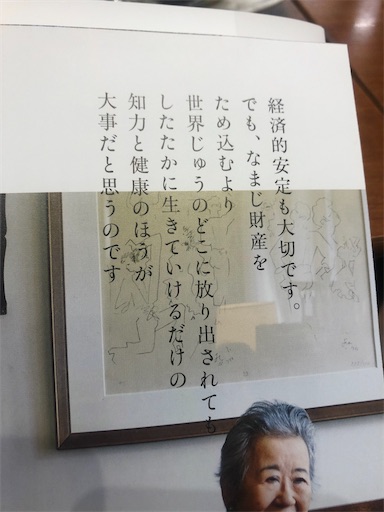 経済的安定も大切です。
でも、なまじ財産を
ため込むより
世界じゅうのどこに放り出されても
したたかに生きていけるだけの
知力と健康のほうが
大事だと思うのです